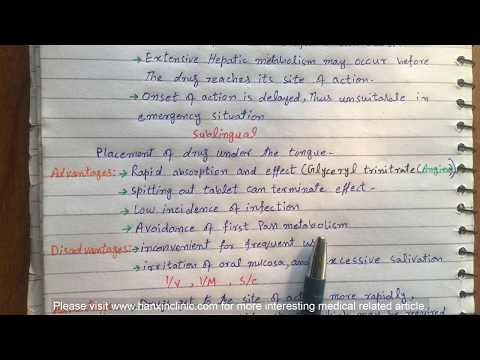 → Extensive Hepatic metabolism may occur before
The drug reaches its site of action.
→ Onset of action is delayed, Thus unsuitable in
emergency situation
Sublingual
Placement of drug under the tongue.
Advantages:→ Rapid absorption and effect (Glyceryl trinitrate (Angina)
→ Spitting out tablet can terminate effect.
→ Low incidence of infection
→ Avoidance of first Pass metabolism
Disadvantages:→ inconvenient for frequent
→ irritation of oral mucosa, and excessive salivation
I/V, I/M, S/C
to the site of more rapidly,
Please visit www.hanxinclinic.com for more interesting medical related article.